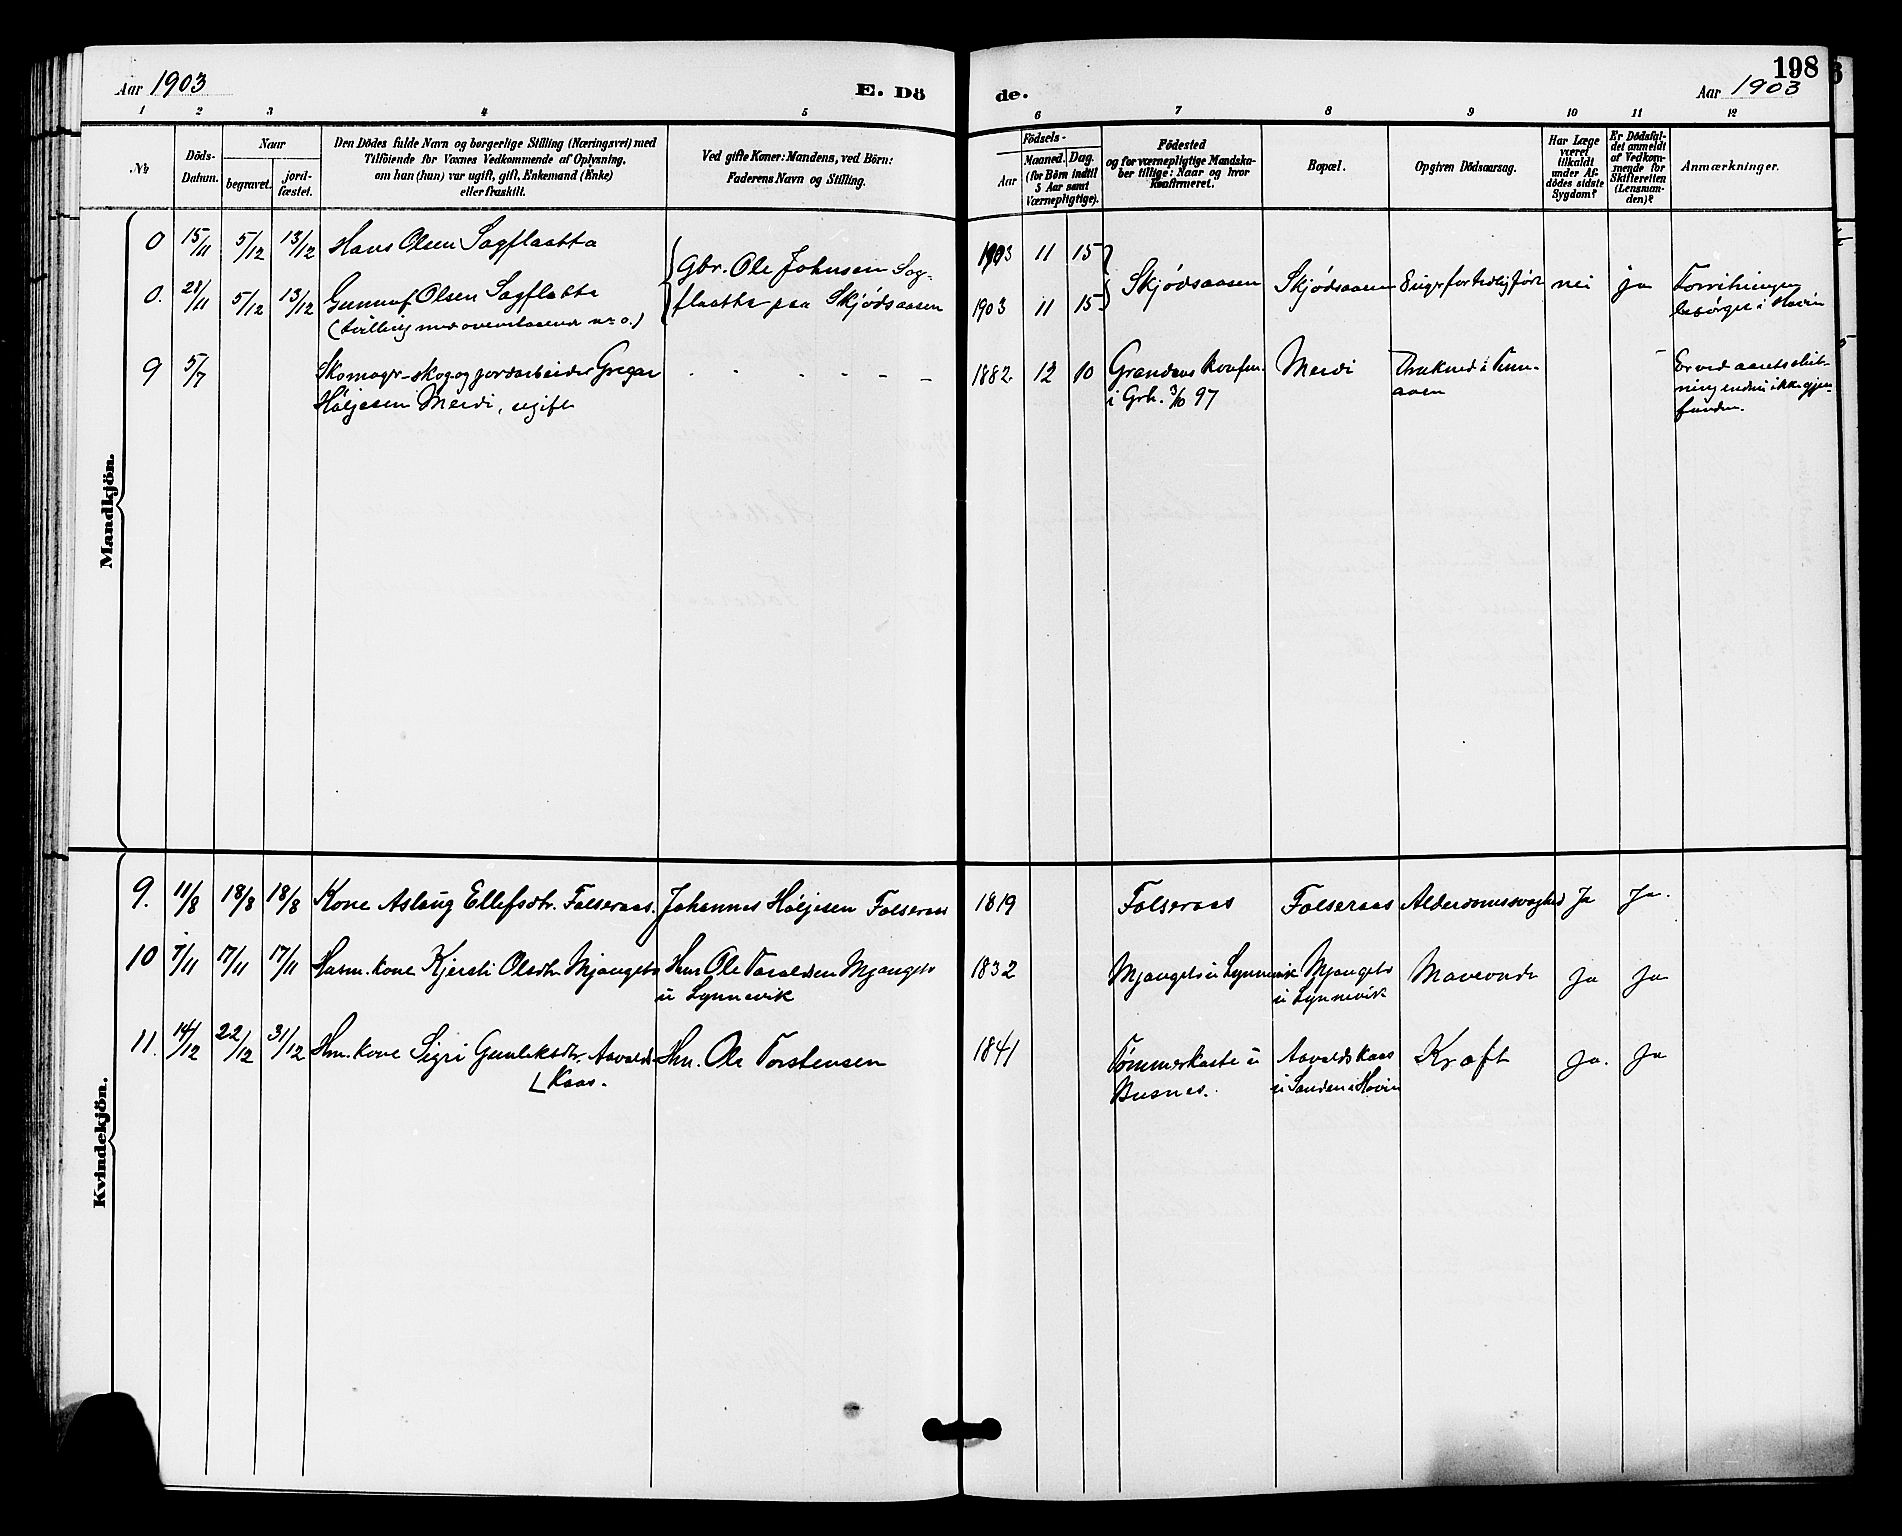 Aar 1903
E. Dö
de.
198
Aar 1903
1 2 3 4 5 6 7 8 9 10 11 12
№
Döds-
Datum.
Naar
begravet.
jord-
fæstet.
Den Dödes fulde Navn og borgerlige Stilling (Næringsvei) med
Tilföiende for Voxnes Vedkommende af Oplysning,
om han (hun) var ugift, gift, Enkemand (Enke)
eller fraskilt.
Ved gifte Koner: Mandens, ved Börn:
Faderens Navn og Stilling.
Födsels-
Aar
Maaned.
Dag.
(for Börn indtil
5 Aar samt
Værnepligtige).
Födested
og for værnepligtige Mandska-
ber tillige: Naar og hvor
konfirmeret.
Bopæl.
Opgiven Dödsaarsag.
Har Læge
været
tilkaldt
under Af-
dödes sidste
Sygdom?
Er Dödsfal-
det anmeldt
af Vedkom-
mende for
Skifteretten
(Lensman-
den)?
Anmærkninger.
Mandkjön.
0 15/11 5/12 13/12 Hans Olsen Sagflaatta
Gbr. Ole Johnsen Sag-
flaatta paa Skjødsaasen
1903 11 15
0. 21/11 5/12 13/12 Gunnuf Olsen Sagflaatta
(tvilling med ovenstaaende nr 0.)
1903 11 15
Skjødsaasen Skjødsaasen nei ja
i Hovin
9 5/7 Skomager- skog og jordarbeider Gregar
Høljesen Meidi, ugift
1882 12 10 Grandens konfm.
i Grb. 3/10 97
Meidi
Druknet i Tinn-
aaen
Er ved aarets slut-
ning endnu ikke gjen-
funden.
Kvindekjön.
9. 11/8 18/8 18/8 Kone Aslaug Ellefsdtr. Folseraas. Johannes Høljesen Folseraas 1819 Folseraas Folseraas Alderdomssvaghed Ja Ja.
10 7/11 17/11 17/11 Husm. kone Kjersti Olsdtr. Mjangets Hm. Ole Taraldsen Mjangets
u Lynnevik
1832 Mjangets u Lynnevik Mjangets
u Lynnevik
Maveonde ja ja
11. 14/12 22/12 31/12 Hm. kone Sigri Gunleiksdtr. Aavalds-
Kaas.
Hm. Ole Torstensen
1841 Tømmerkaste u
Busnes.
Aavaldskaas
u Sanden i Hovin
Kræft ja. ja